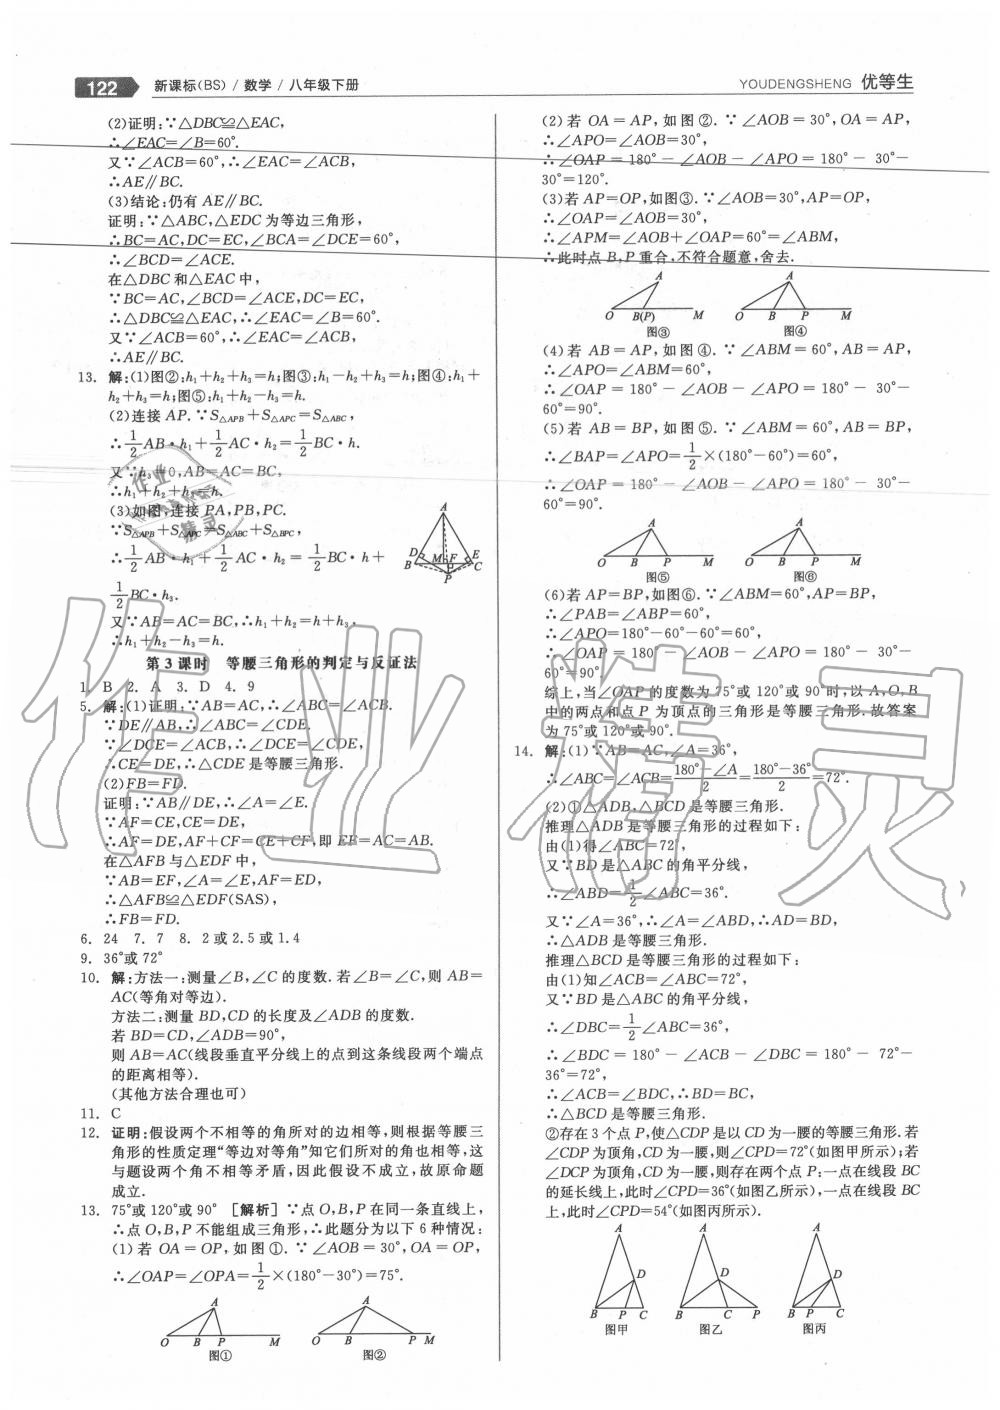 122 新课标(BS) / 数学 / 八年级下册
YOUDENGSHENG 优等生
(2)证明:∵△DBC≌△EAC,
∴∠EAC=∠B=60°.
又∵∠ACB=60°,∴∠EAC=∠ACB,
∴AE∥BC.
(3)结论:仍有 AE∥BC.
证明:∵△ABC,△EDC 为等边三角形,
∴BC=AC,DC=EC,∠BCA=∠DCE=60°,
∴∠BCD=∠ACE.
在△DBC 和△EAC 中,
∵BC=AC,∠BCD=∠ACE,DC=EC,
∴△DBC≌△EAC,∴∠EAC=∠B=60°.
又∵∠ACB=60°,∴∠EAC=∠ACB,
∴AE∥BC.
13. 解:(1)图②:h₁+h₂+h₃=h;图③:h₁-h₂+h₃=h;图④:h₁+
h₂+h₃=h;图⑤:h₁+h₂-h₃=h.
(2)连接 AP.∵S△APB+S△APC=S△ABC,
∴1/2 AB·h₁+1/2 AC·h₂=1/2 BC·h.
又∵h₃=0,AB=AC=BC,
∴h₁+h₂+h₃=h.
(3)如图,连接 PA,PB,PC.
∵S△APB+S△APC=S△ABC+S△BPC,
∴1/2 AB·h₁+1/2 AC·h₂=1/2 BC·h+
1/2 BC·h₃.
A D M F E B H C P
又∵AB=AC=BC,∴h₁+h₂=h+h₃,
∴h₁+h₂-h₃=h.
第3课时 等腰三角形的判定与反证法
1. B 2. A 3. D 4. 9
5. 解:(1)证明:∵AB=AC,∴∠ABC=∠ACB.
∵DE∥AB,∴∠ABC=∠CDE.
∵∠DCE=∠ACB,∴∠DCE=∠CDE,
∴CE=DE,∴△CDE是等腰三角形.
(2)FB=FD.
证明:∵AB∥DE,∴∠A=∠E.
∵AF=CE,CE=DE,
∴AF=DE,AF+CF=CE+CF,即 EF=AC=AB.
在△AFB与△EDF中,
∵AB=EF,∠A=∠E,AF=ED,
∴△AFB≌△EDF(SAS),
∴FB=FD.
6. 24 7. 7 8. 2或2.5或1.4
9. 36°或72°
10. 解:方法一:测量∠B,∠C的度数.若∠B=∠C,则 AB=
AC(等角对等边).
方法二:测量 BD,CD的长度及∠ADB的度数.
若 BD=CD,∠ADB=90°,
则 AB=AC(线段垂直平分线上的点到这条线段两个端点
的距离相等).
(其他方法合理也可)
11. C
12. 证明:假设两个不相等的角所对的边相等,则根据等腰三
角形的性质定理“等边对等角”知它们所对的角也相等,这
与题设两个角不相等矛盾,因此假设不成立,故原命题
成立.
13. 75°或120°或90° [解析]∵点O,B,P在同一条直线上,
∴点O,B,P不能组成三角形,∴此题分为以下6种情况:
(1)若 OA=OP,如图①.∵∠AOB=30°,OA=OP,
∴∠OAP=∠OPA=1/2×(180°-30°)=75°.
A O B P M 图①
A O B P M 图②
(2)若 OA=AP,如图②.∵∠AOB=30°,OA=AP,
∴∠APO=∠AOB=30°,
∴∠OAP=180°-∠AOB-∠APO=180°-30°-
30°=120°.
(3)若 AP=OP,如图③.∵∠AOB=30°,AP=OP,
∴∠OAP=∠AOB=30°,
∴∠APM=∠AOB+∠OAP=60°=∠ABM,
∴此时点B,P重合,不符合题意,舍去.
A O B(P) M 图③
A O B P M 图④
(4)若 AB=AP,如图④.∵∠ABM=60°,AB=AP,
∴∠APO=∠ABM=60°,
∴∠OAP=180°-∠AOB-∠APO=180°-30°-
60°=90°.
(5)若 AB=BP,如图⑤.∵∠ABM=60°,AB=BP,
∴∠BAP=∠APO=1/2×(180°-60°)=60°.
∴∠OAP=180°-∠AOB-∠APO=180°-30°-
60°=90°.
A O B P M 图⑤
A O B P M 图⑥
(6)若 AP=BP,如图⑥.∵∠ABM=60°,AP=BP,
∴∠PAB=∠ABP=60°,
∴∠APO=180°-60°-60°=60°,
∴∠OAP=180°-∠AOB-∠APO=180°-30°-
60°=90°.
综上,当∠OAP的度数为75°或120°或90°时,以A,O,B
中的两点和点P为顶点的三角形是等腰三角形.故答案
为75°或120°或90°.
14. 解:(1)∵AB=AC,∠A=36°,
∴∠ABC=∠ACB=(180°-∠A)/2=(180°-36°)/2=72°.
(2)①△ADB,△BCD是等腰三角形.
推理△ADB是等腰三角形的过程如下:
由(1)得∠ABC=72°,
又∵BD是△ABC的角平分线,
∴∠ABD=1/2∠ABC=36°.
又∵∠A=36°,∴∠A=∠ABD,∴AD=BD,
∴△ADB是等腰三角形.
推理△BCD是等腰三角形的过程如下:
由(1)知∠ACB=∠ABC=72°,
又∵BD是△ABC的角平分线,
∴∠DBC=1/2∠ABC=36°,
∴∠BDC=180°-∠ACB-∠DBC=180°-72°-
36°=72°,
∴∠ACB=∠BDC,∴BD=BC,
∴△BCD是等腰三角形.
②存在3个点P,使△CDP是以CD为一腰的等腰三角形.若
∠CDP为顶角,CD为一腰,则∠CPD=72°(如图甲所示);若
∠DCP为顶角,CD为一腰,则存在两个点P:一点在线段BC
的延长线上,此时∠CPD=36°(如图乙所示),一点在线段BC
上,此时∠CPD=54°(如图丙所示).
A D B P C 图甲
A D B C P 图乙
A D B P C 图丙
作业精灵